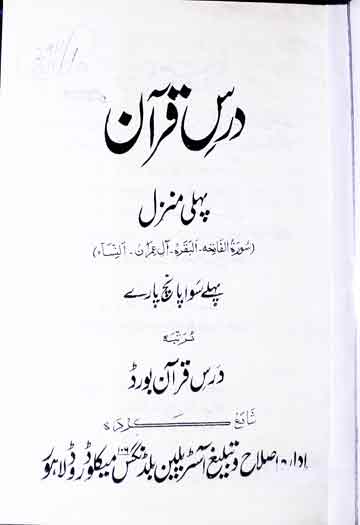 درسِ قرآن
پہلی منزل
(سُورۃُ الفَاتحہ - البَقرہ - آل عِمرٰن - النِّسَاء)
پہلے سوا پانچ پارے
مُرتّبہ
درسِ قرآن بورڈ
شائع کردہ
ادارہ اصلاح و تبلیغ آسٹریلین بلڈنگس میکلوڈ روڈ لاہور